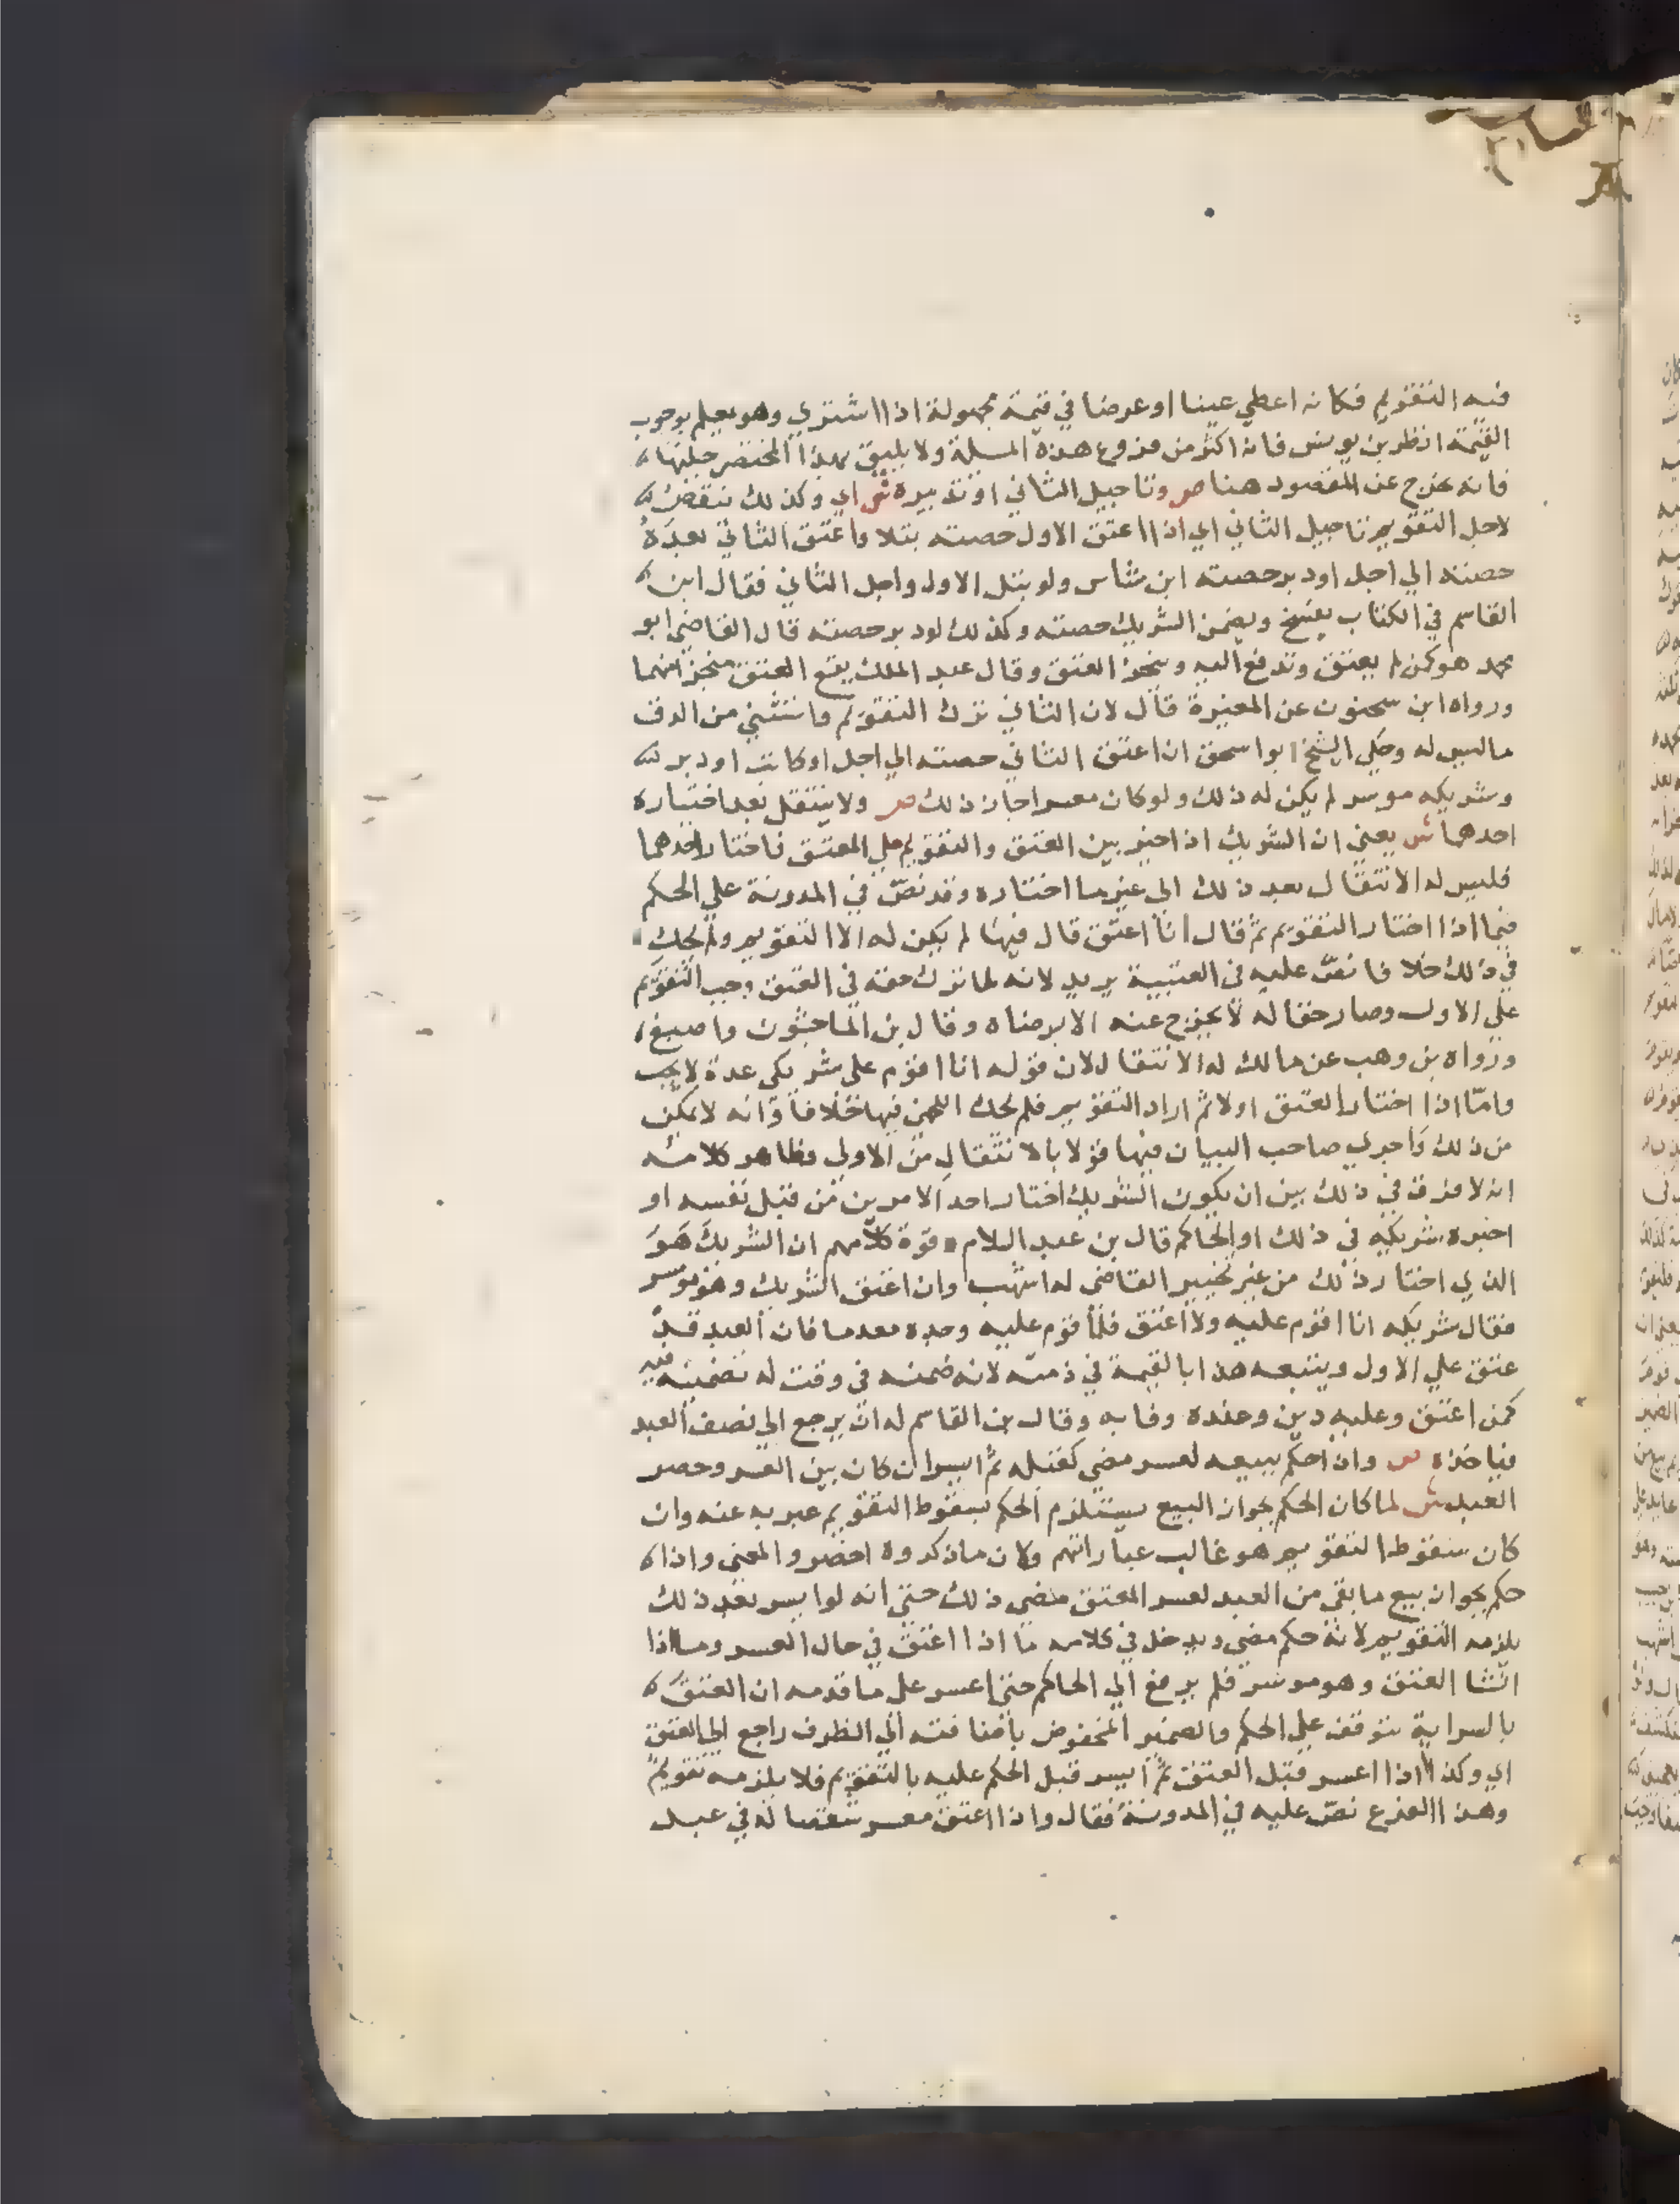 فيه التقويم فكانه اعطي عينا او عرضا في قيمة مجهولة اذا اشتري وهو يعلم بوجوب
القيمة انظر بن يونس فانه اكثر من فروع هذه المسلة ولا يليق بهذا المختصر جلبها
فانه يخرج عن المقصود هنا ص وتاجيل الثاني او تدبيره ش اي وكذلك ينقض
لاجل التقويم تاجيل الثاني اي اذا اعتق الاول حصته بتلا واعتق الثاني بعده
حصته الي اجل او دبر حصته ابن شاس ولو بتل الاول واجل الثاني فقال ابن
القاسم في الكتاب يفسخ ويضمن الشريك حصته وكذلك لو دبر حصته قال القاضي ابو
محمد هو كمن لم يعتق وتدفع اليه وينجز العتق وقال عبد الملك يقع العتق منجزا منهما
ورواه ابن سحنون عن المغيرة قال لان الثاني ترك التقويم واستثني من الرق
ما ليس له وحكي الشيخ ابو اسحق ان اعتق الثاني حصته الي اجل او كاتب او دبر
وشريكه موسر لم يكن له ذلك ولو كان معسرا جاز ذلك ص ولا ينتقل بعد اختياره
احدهما ش يعني ان الشريك اذا خير بين العتق والتقويم علي المعتق فاختار احدهما
فليس له الانتقال بعد ذلك الي غير ما اختاره وقد نص في المدونة علي الحكم
فيما اذا اختار التقويم ثم قال انا اعتق قال فيها لم يكن له الا التقويم ولم يحك
في ذلك خلافا نص عليه في العتبية يريد لانه لما ترك حقه في العتق وجب التقويم
علي الاول وصار حقا له لا يخرج عنه الا برضاه وقال بن الماجشون واصبغ
ورواه بن وهب عن مالك له الانتقال لان قوله انا اقوم على شريكي عدة لا يجب
وامّا اذا اختار العتق اولا ثم اراد التقويم فلم يحك اللخمي فيها خلافا وانه لا يمكن
من ذلك واجري صاحب البيان فيها قولا بالانتقال من الاولي وظاهر كلامه
انه لا فرق في ذلك بين ان يكون الشريك اختار احد الامرين من قبل نفسه او
اخبره شريكه في ذلك او الحاكم قال بن عبد السلام وقوة كلامهم ان الشريك هو
الذي اختار ذلك من غير تخيير القاضي له اشهب وان اعتق الشريك وهو موسر
فقال شريكه انا اقوم عليه ولا اعتق فلما قوم عليه وجده معدما فان العبد قد
عتق علي الاول ويتبعه هذا بالقيمة في ذمته لانه ضمنه في وقت له تضمينه فيه
كمن اعتق وعليه دين وعنده وفا به وقال بن القاسم له ان يرجع الي نصف العبد
فياخذه ص وان احكم ببيعه لعسر مضي كقبله ثم ايسر ان كان بين العسر وحضر
العبد ش لما كان الحكم بجواز البيع يستلزم الحكم بسقوط التقويم عبر به عنه وان
كان سقوط التقويم هو غالب عباراتهم ولان ما ذكروه اخصر والمعني واذا
حكم بجواز بيع ما بقي من العبد لعسر المعتق مضى ذلك حتي انه لو ايسر بعد ذلك
يلزمه التقويم لانه حكم مضى ويدخل في كلامه ما اذا اعتق في حال العسر وما اذا
انشا العتق وهو موسر فلم يرفع الي الحاكم حتي اعسر على ما قدمه ان العتق
بالسراية يتوقف علي الحكم والضمير المخفوض باضافته الي الظرف راجع الي العتق
اي وكذا اذا اعسر قبل العتق ثم ايسر قبل الحكم عليه بالتقويم فلا يلزمه تقويم
وهذا الفرع نص عليه في المدونة فقال واذا اعتق معسر شقصا له في عبد